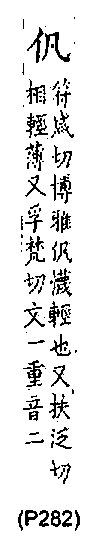 㐲
符咸切博雅㐲懱輕也又扶泛切
相輕薄又孚梵切文一重音二
(P282)